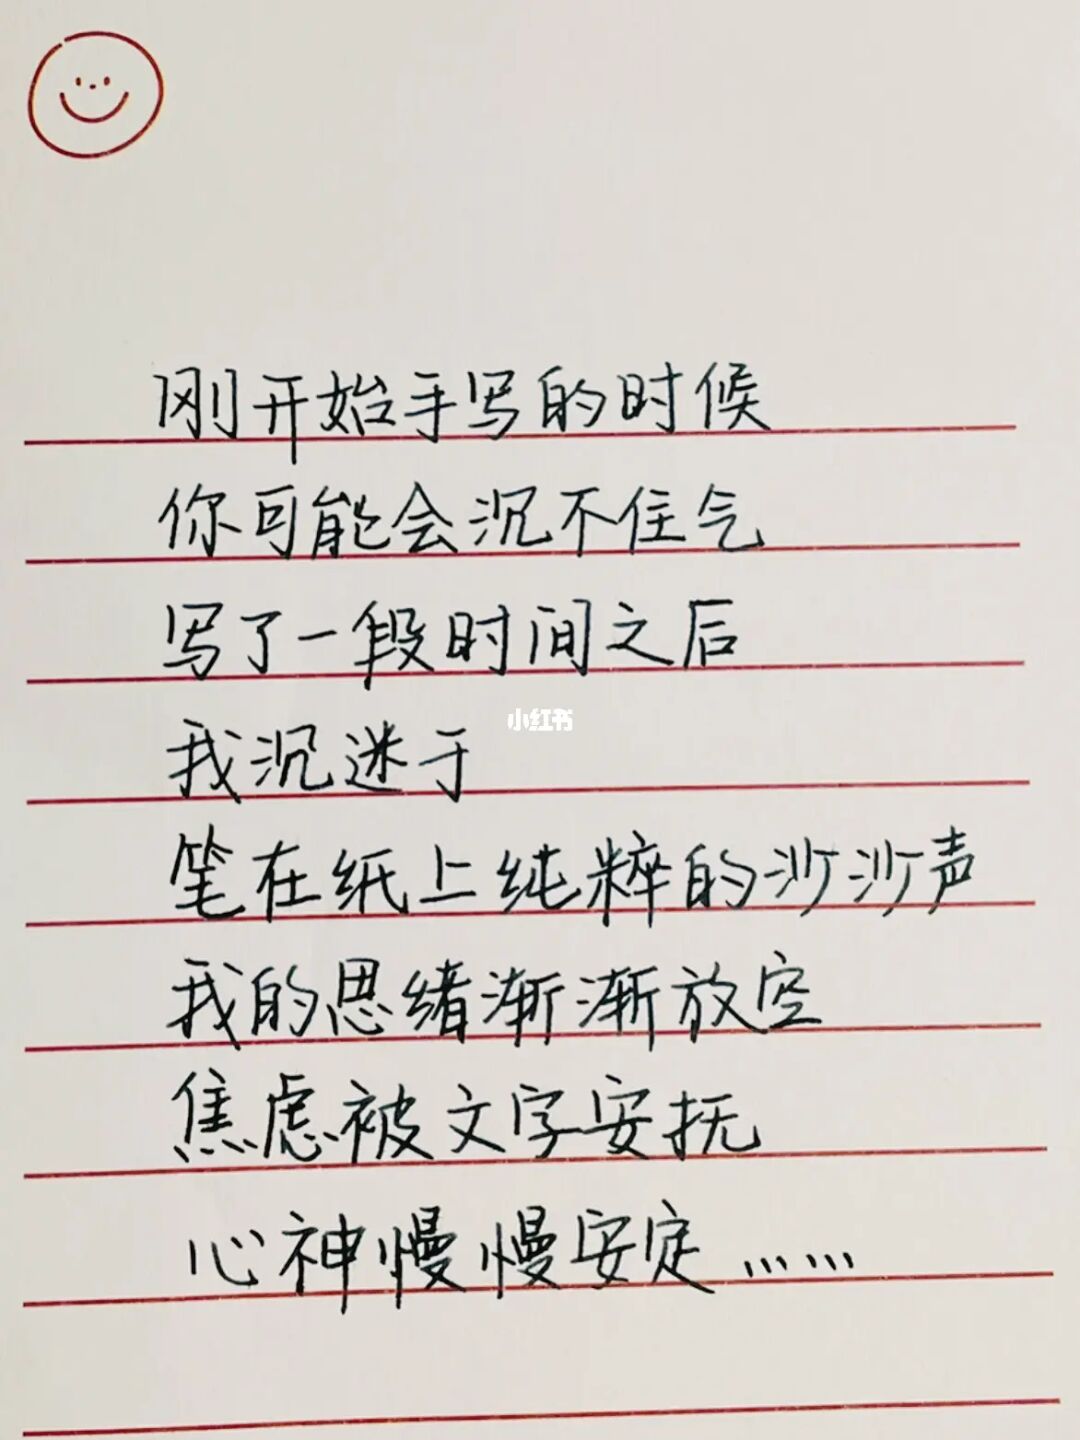 刚开始手写的时候
你可能会沉不住气
写了一段时间之后
小红书
我沉迷于
笔在纸上纯粹的沙沙声
我的思绪渐渐放空
焦虑被文字安抚
心神慢慢安定……